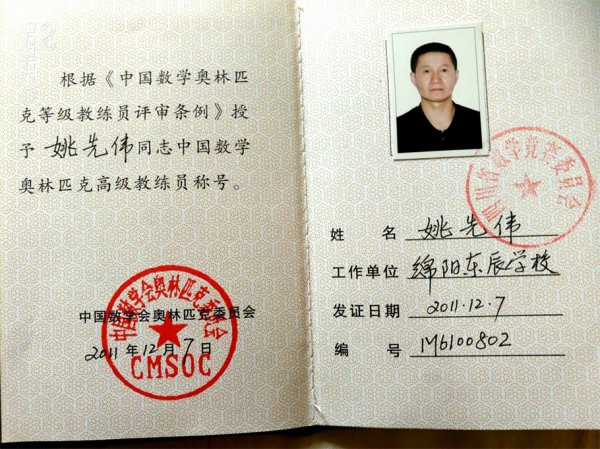 根据《中国数学奥林匹
克等级教练员评审条例》授
予 姚先伟 同志中国数学
奥林匹克高级教练员称号。
中国数学会奥林匹克委员会
2011 年 12 月 7 日
中国数学会奥林匹克委员会
CMSOC
四川省数学竞赛委员会
姓 名 姚先伟
工作单位 绵阳东辰学校
发证日期 2011.12.7
编 号 M6100802